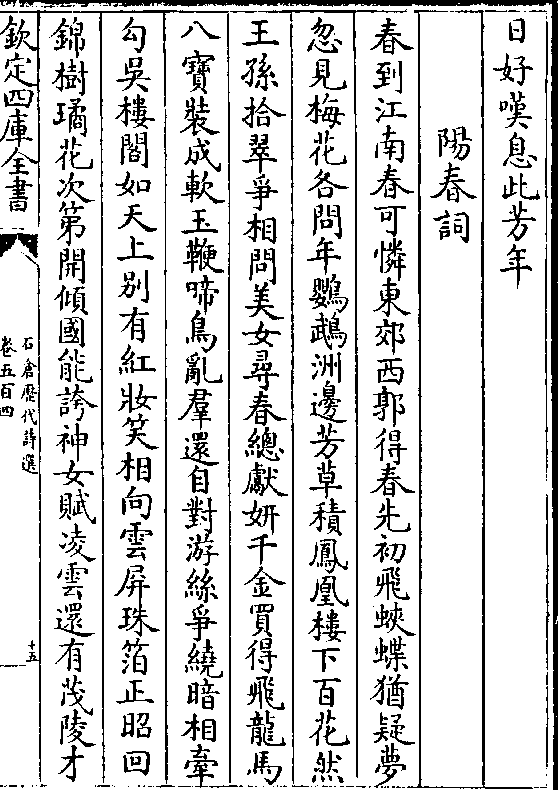 日好嘆息此芳年
陽春詞
春到江南春可憐東郊西郭得春先初飛蛺蝶猶疑夢
忽見梅花各問年鸚鵡洲邊芳草積鳳凰樓下百花然
王孫拾翠爭相問美女尋春總獻妍千金買得飛龍馬
八寶裝成軟玉鞭啼鳥亂羣還自對游絲爭繞暗相牽
勾吳樓閣如天上别有紅妝笑相向雲屏珠箔正昭回
錦樹璚花次第開傾國能誇神女賦凌雲還有茂陵才
欽定四庫全書
石倉歷代詩選
卷五百四
十五